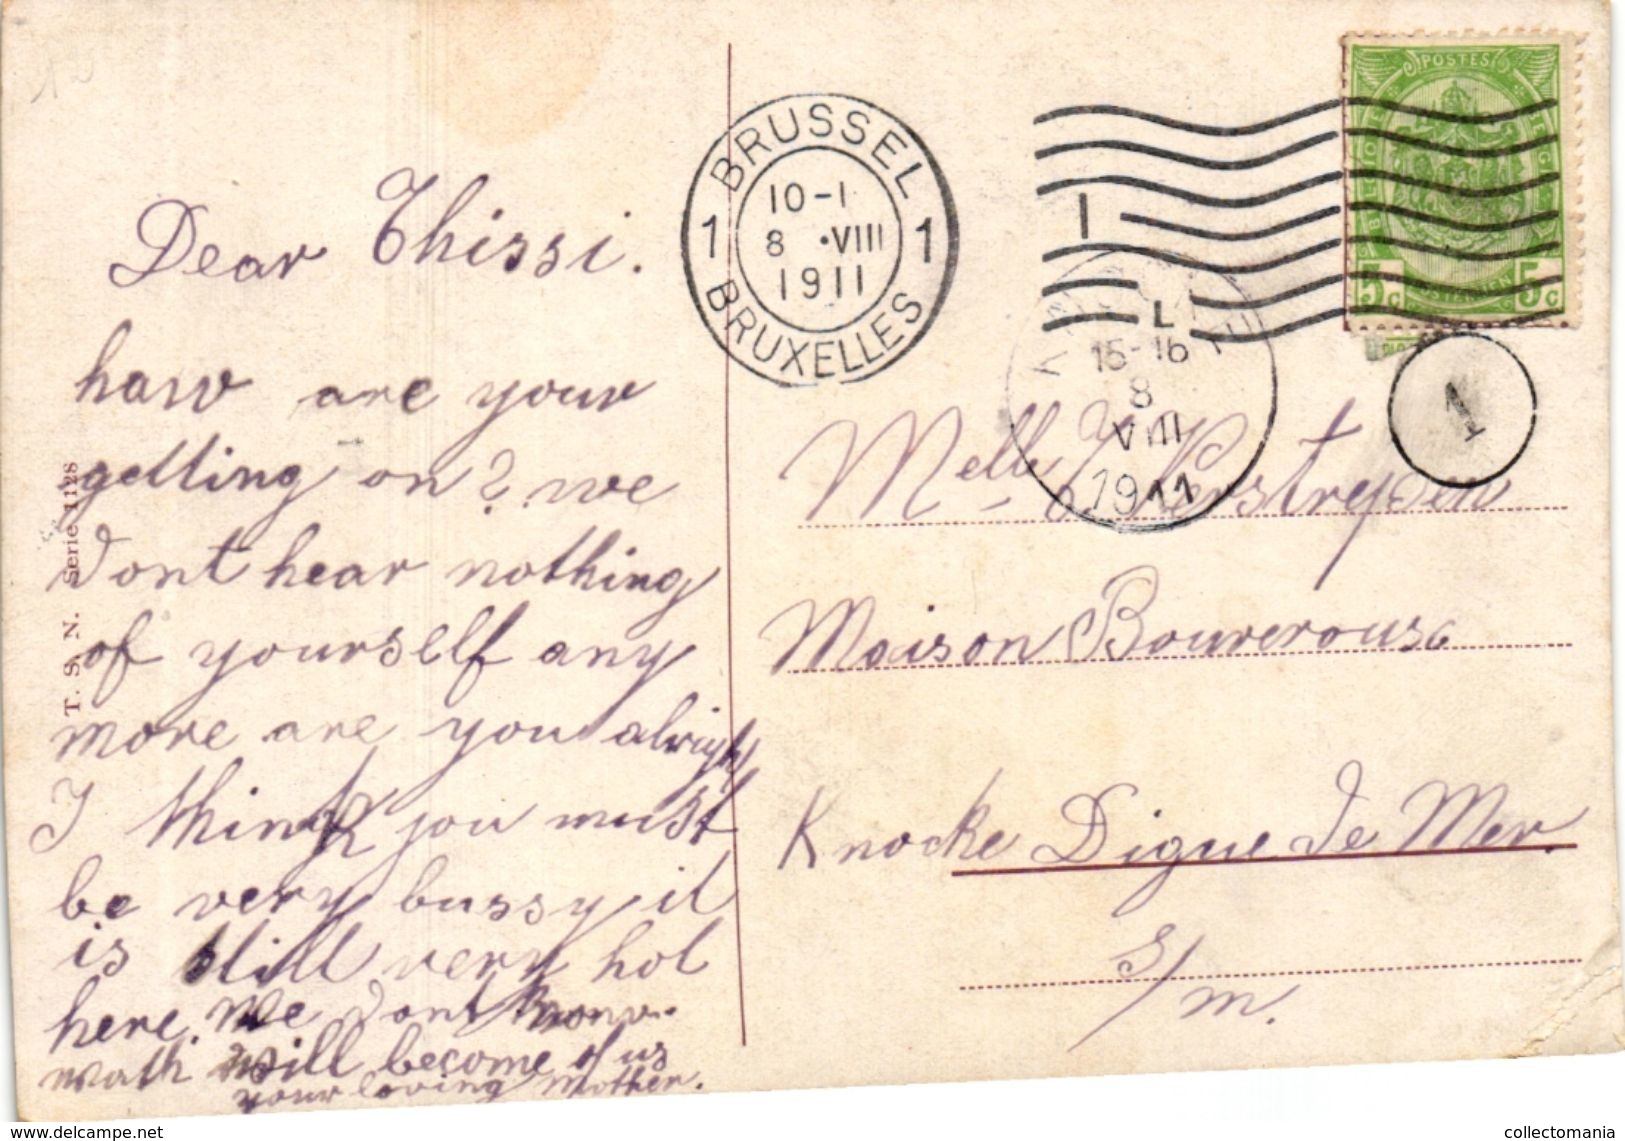 Dear Thissi.
haw are your
getting on? we
dont hear nothing
of yourself any
more are you alright
I think you must
be very bussy it
is still very hot
here. we dont know.
wath will become of us
your loving Mother.
T. S. N. Serie 1128
BRUSSEL
10-1
8 •VIII
1911
1 1
BRUXELLES
1
L
15-16
8
VIII
1911
POSTES
5c 5c
POSTERIJEN
1
Melle Verstreyden
Maison Bourerouse
Knocke Digue de Mer.
s/m.
www.delcampe.net
collectomania